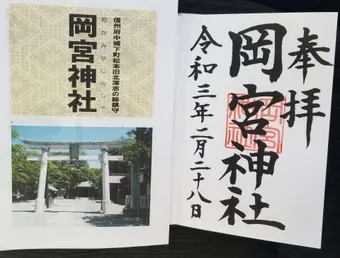 信州府中城下町松本旧北深志の総鎮守
岡宮神社
おかみやじんじゃ
奉拝
岡宮神社
令和三年二月二十八日